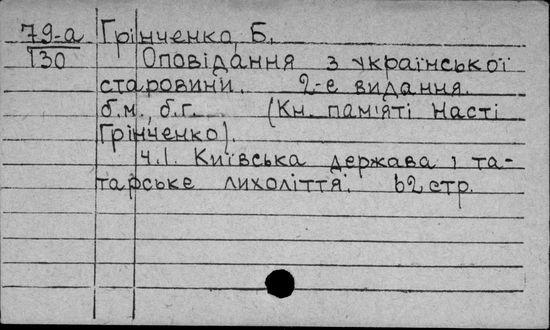 79-а Грінченко, Б.
130 Оповідання з української
старовини. 2-е видання.
б.м., б.г. (Кн. пам'яті Насті
Грінченко).
ч.1. Київська держава і та-
тарське лихоліття. 62 стр.